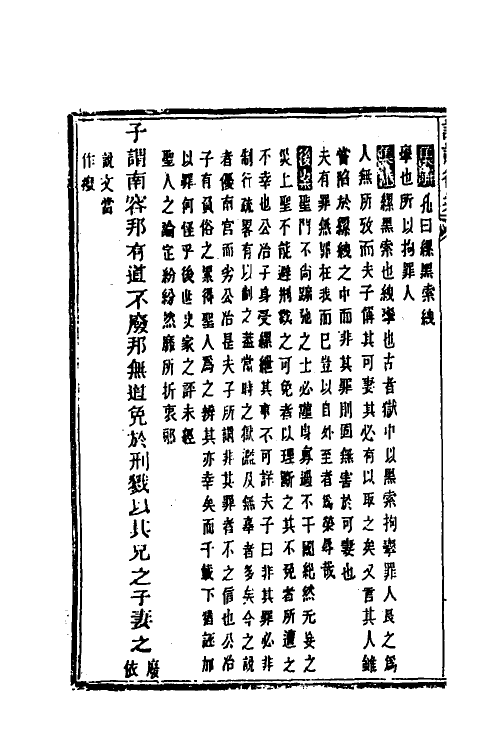 孔曰縲黑索紲
攣也所以拘罪人
縲黑索也紲攣也古者獄中以黑索拘攣罪人長之爲
人無所攷而夫子稱其可妻其必有以取之矣又言其人雖
嘗陷於縲紲之中而非其罪則固無害於可妻也
夫有罪無罪在我而已豈以自外至者爲榮辱哉
後案聖門不尚跅弛之士必謹身寡過不干國紀然无妄之
災上聖不能避刑戮之可免者以理斷之其不免者所遭之
不幸也公冶子身受縲紲其事不可詳夫子曰非其罪必非
制行疏畧有以創之蓋當時之獄濫及無辜者多矣今之說
者優南宫而劣公冶是夫子所謂非其罪者不之信也公冶
子有負俗之累得聖人爲之辨其亦幸矣而千載下猶誣加
以罪何怪乎後世史家之評未經
聖人之論定紛紛然靡所折衷邪
子謂南容邦有道不廢邦無道免於刑戮以其兄之子妻之
廢依
說文當
作癈